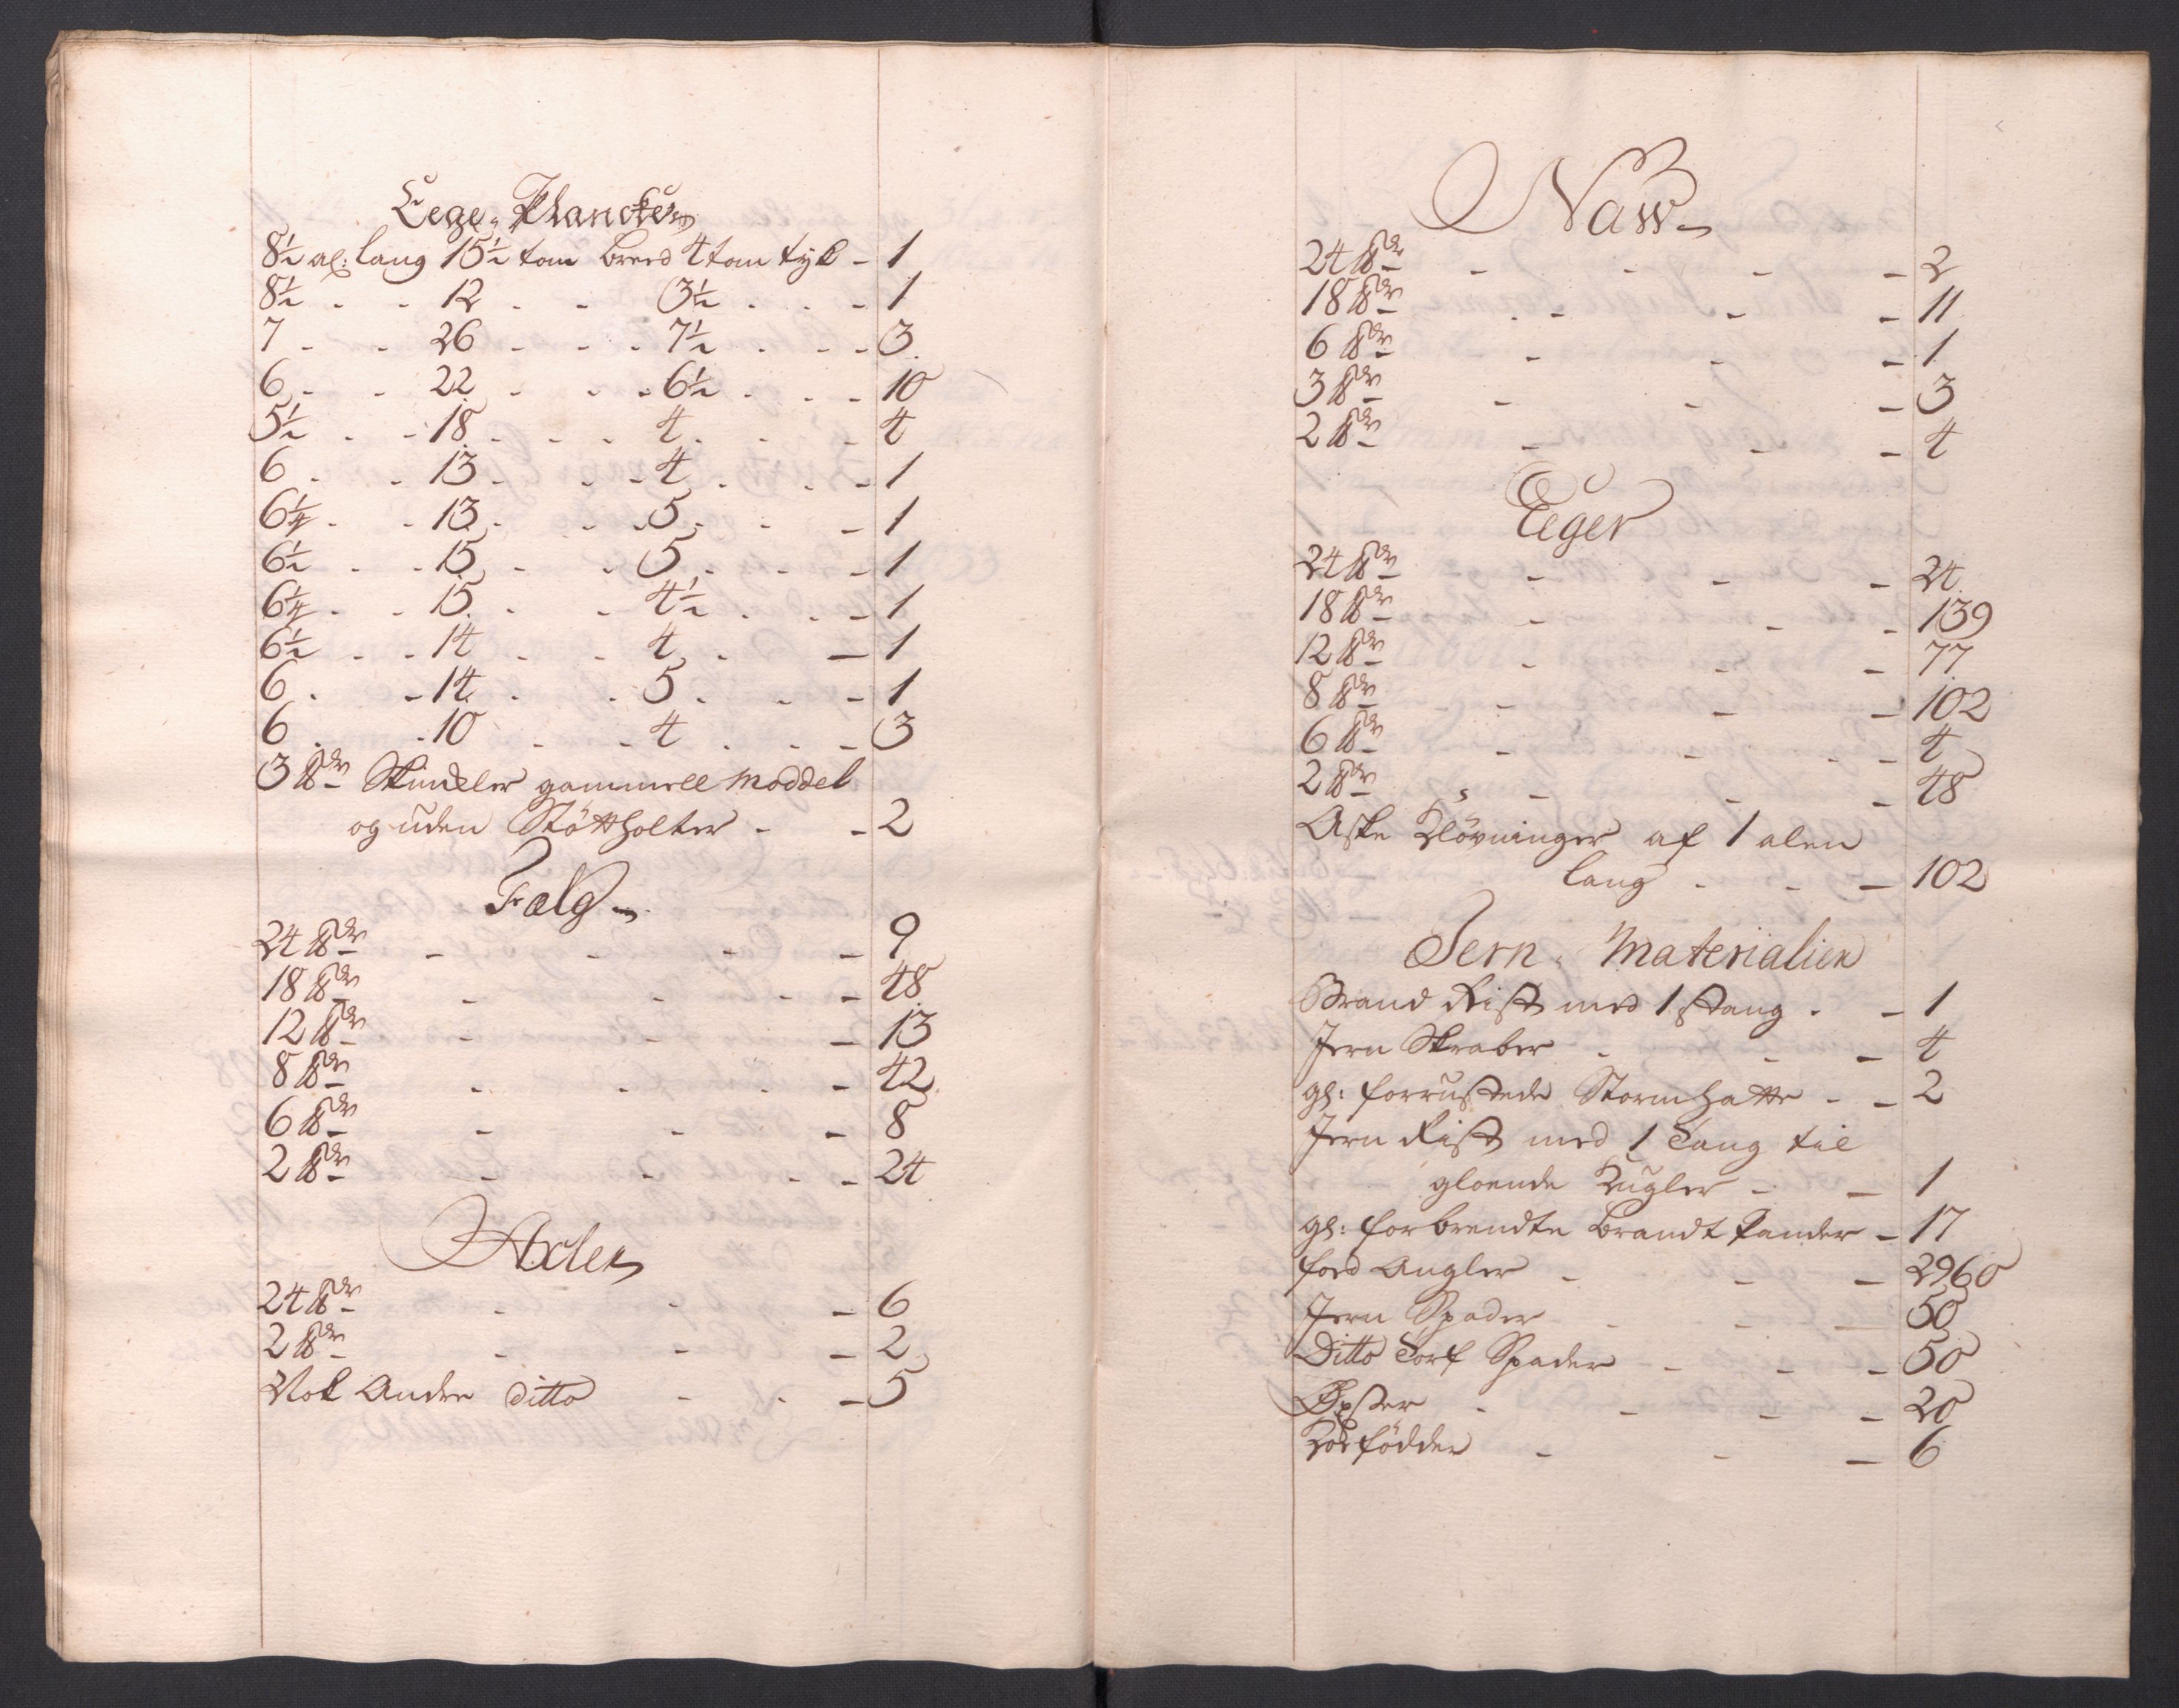 Eege-Plancker
8½ al: lang 15½ tom breed 4 tom tyk - 1
8½ - - 12 - - 3½ - - - 1
7 - - 26 - - - 7½ - - - 3
6 - - 22 - - - 6½ - - - 10
5½ - - 18 - - - 4 - - - 4
6 - - 13 - - - 4 - - - 1
6¼ - - 13 - - - 5 - - - 1
6½ - - 15 - - 5 - - - 1
6¼ - - 15 - - 4½ - - - 1
6½ - - 14 - - 4 - - 1
6 - - 14 - - 5 - - - 1
6 - - 10 - - 4 - - - 3
3 ℔dr Skindeler gammell Moddel
og uden Støttholter - - 2
Fælg
24 ℔dr - - - - 9
18 ℔dr - - - - 48
12 ℔dr - - - 13
8 ℔dr - - - - 42
6 ℔dr - - - 8
2 ℔dr - - - - 24
Axler
24 ℔dr - - - 6
2 ℔dr - - - 2
Nok Andre ditto - - - 5
Naw
24 ℔dr - - - - 2
18 ℔dr - - - - 11
6 ℔dr - - - 1
3 ℔dr - - - 3
2 ℔dr - - - 4
Eeger
24 ℔dr - - - 24
18 ℔dr - - - 139
12 ℔dr - - - 77
8 ℔dr - - - 102
6 ℔dr - - - - 4
2 ℔dr - - - - 48
Aske Kløvninger af 1 alen
lang - - - 102
Jern-Materialier
Brand Rist med 1 stang - - 1
Jern Skraber - - - 4
gl: forrustede Stormhatte - - 2
Jern Rist med 1 Tang til
gloende Kugler - - 1
gl: forbrendte Brandt Pander - 17
food Angler - - - 2960
Jern Spader - - - 50
Ditto Torf Spader - - - 50
Øxser - - - - 20
Koefødder - - - 6